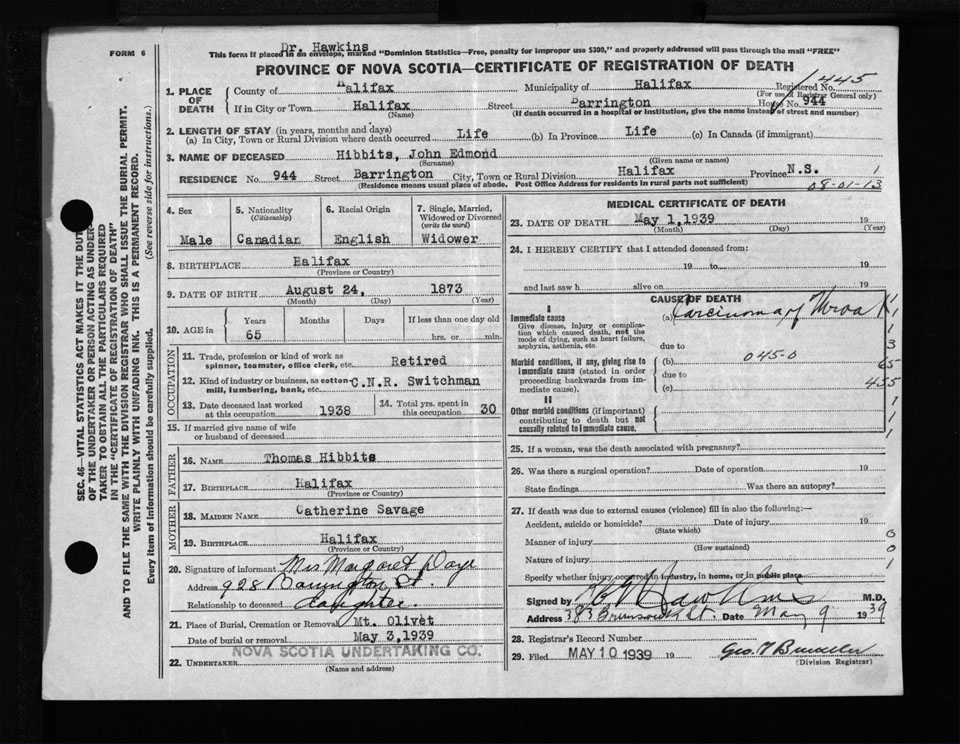 FORM 6
Dr. Hawkins
This form if placed in an envelope, marked "Dominion Statistics—Free, penalty for improper use $300," and properly addressed will pass through the mail "FREE"
PROVINCE OF NOVA SCOTIA—CERTIFICATE OF REGISTRATION OF DEATH
1. PLACE OF DEATH
County of Halifax Municipality of Halifax Registered No. 1445
(For use of Registrar General only)
If in City or Town Halifax Street Barrington House No. 944
(Name) (If death occurred in a hospital or institution, give the name instead of street and number)
2. LENGTH OF STAY (in years, months and days)
(a) In City, Town or Rural Division where death occurred Life (b) In Province Life (c) In Canada (if immigrant)
3. NAME OF DECEASED Hibbits, John Edmond
(Surname) (Given name or names)
RESIDENCE No. 944 Street Barrington City, Town or Rural Division Halifax Province N.S. 1
(Residence means usual place of abode. Post Office Address for residents in rural parts not sufficient) 08-01-13
4. Sex
Male
5. Nationality
(Citizenship)
Canadian
6. Racial Origin
English
7. Single, Married, Widowed or Divorced
(write the word)
Widower
8. BIRTHPLACE Halifax
(Province or Country)
9. DATE OF BIRTH August 24, 1873
(Month) (Day) (Year)
10. AGE in
Years Months Days If less than one day old
65 hrs. or min.
OCCUPATION
11. Trade, profession or kind of work as spinner, teamster, office clerk, etc. Retired
12. Kind of industry or business, as cotton mill, lumbering, bank, etc. C.N.R. Switchman
13. Date deceased last worked at this occupation 1938
14. Total yrs. spent in this occupation 30
15. If married give name of wife or husband of deceased
FATHER
16. NAME Thomas Hibbits
17. BIRTHPLACE Halifax
(Province or Country)
MOTHER
18. MAIDEN NAME Catherine Savage
19. BIRTHPLACE Halifax
(Province or Country)
20. Signature of informant Mrs Margaret Daye
Address 928 Barrington St.
Relationship to deceased daughter
21. Place of Burial, Cremation or Removal Mt. Olivet
Date of burial or removal May 3, 1939
22. UNDERTAKER NOVA SCOTIA UNDERTAKING CO.
(Name and address)
MEDICAL CERTIFICATE OF DEATH
23. DATE OF DEATH May 1, 1939 19
(Month) (Day) (Year)
24. I HEREBY CERTIFY that I attended deceased from:
19 to 19
and last saw h alive on 19
CAUSE OF DEATH
I
Immediate cause
Give disease, injury or complication which caused death, not the mode of dying, such as heart failure, asphyxia, asthenia, etc.
(a) Carcinoma of Throat
due to
Morbid conditions, if any, giving rise to immediate cause (stated in order proceeding backwards from immediate cause).
(b) 045-0
due to
(c)
II
Other morbid conditions (if important) contributing to death but not causally related to immediate cause.
25. If a woman, was the death associated with pregnancy?
26. Was there a surgical operation? Date of operation 19
State findings Was there an autopsy?
27. If death was due to external causes (violence) fill in also the following:—
Accident, suicide or homicide? Date of injury 19
(State which)
Manner of injury
(How sustained)
Nature of injury
Specify whether injury occurred in industry, in home, or in public place
Signed by Hawkins M.D.
Address 383 Brunswick St. Date May 9 1939
28. Registrar's Record Number
29. Filed MAY 10 1939 19
(Division Registrar)
SEC. 46—VITAL STATISTICS ACT MAKES IT THE DUTY
OF THE UNDERTAKER OR PERSON ACTING AS UNDER-
TAKER TO OBTAIN ALL THE PARTICULARS REQUIRED
IN THE "CERTIFICATE OF REGISTRATION OF DEATH"
AND TO FILE THE SAME WITH THE DIVISION REGISTRAR WHO SHALL ISSUE THE BURIAL PERMIT.
WRITE PLAINLY WITH UNFADING INK. THIS IS A PERMANENT RECORD.
Every item of information should be carefully supplied. (See reverse side for instructions.)